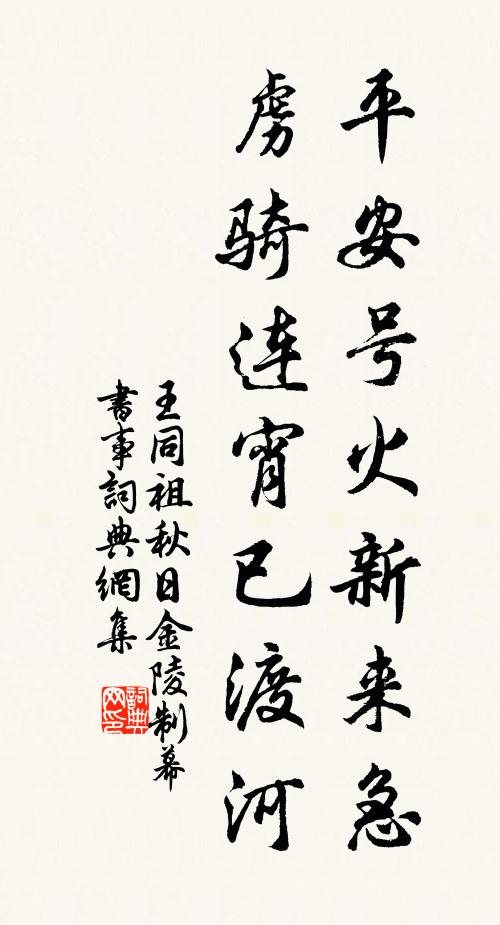 平安号火新来急
虏骑连宵已渡河
王同祖秋日金陵制幕
書事詞典網集
詞典网印